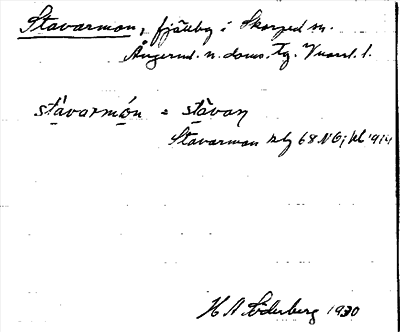 Stavarmon, fjällby i Skorped sn.
Ångerml. n. doms. Tg. Vnorrl. l.
stávarmón = stávan
Stavarmon kbl 68 NO; bl 1914
H A Söderberg 1930